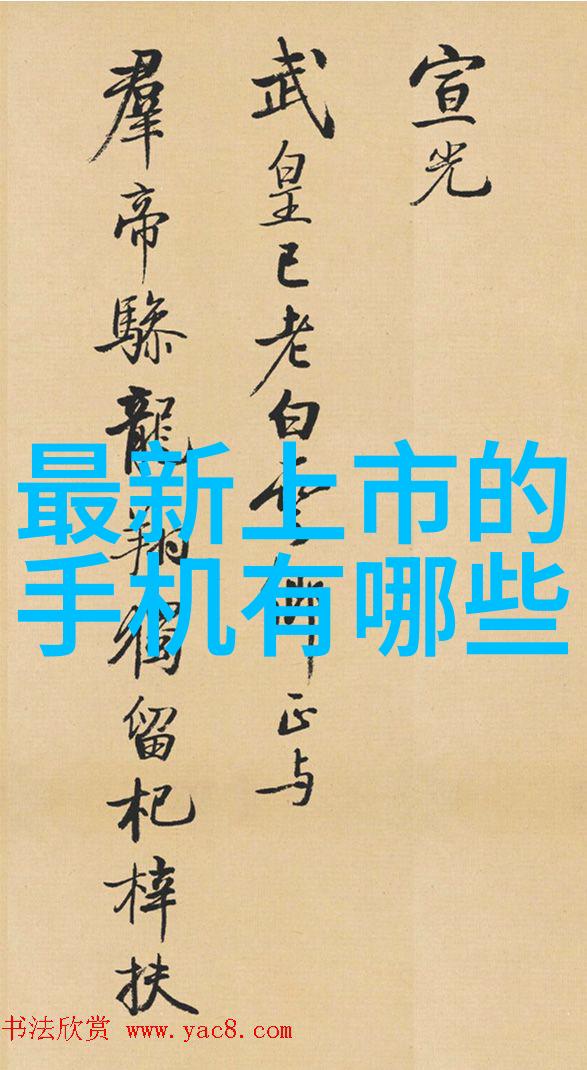 宣光
武皇已老白雲鄉正与
羣帝驂龍翔獨留杞梓扶
最新上市的
手机有哪些
书法欣赏 www.yac8.com